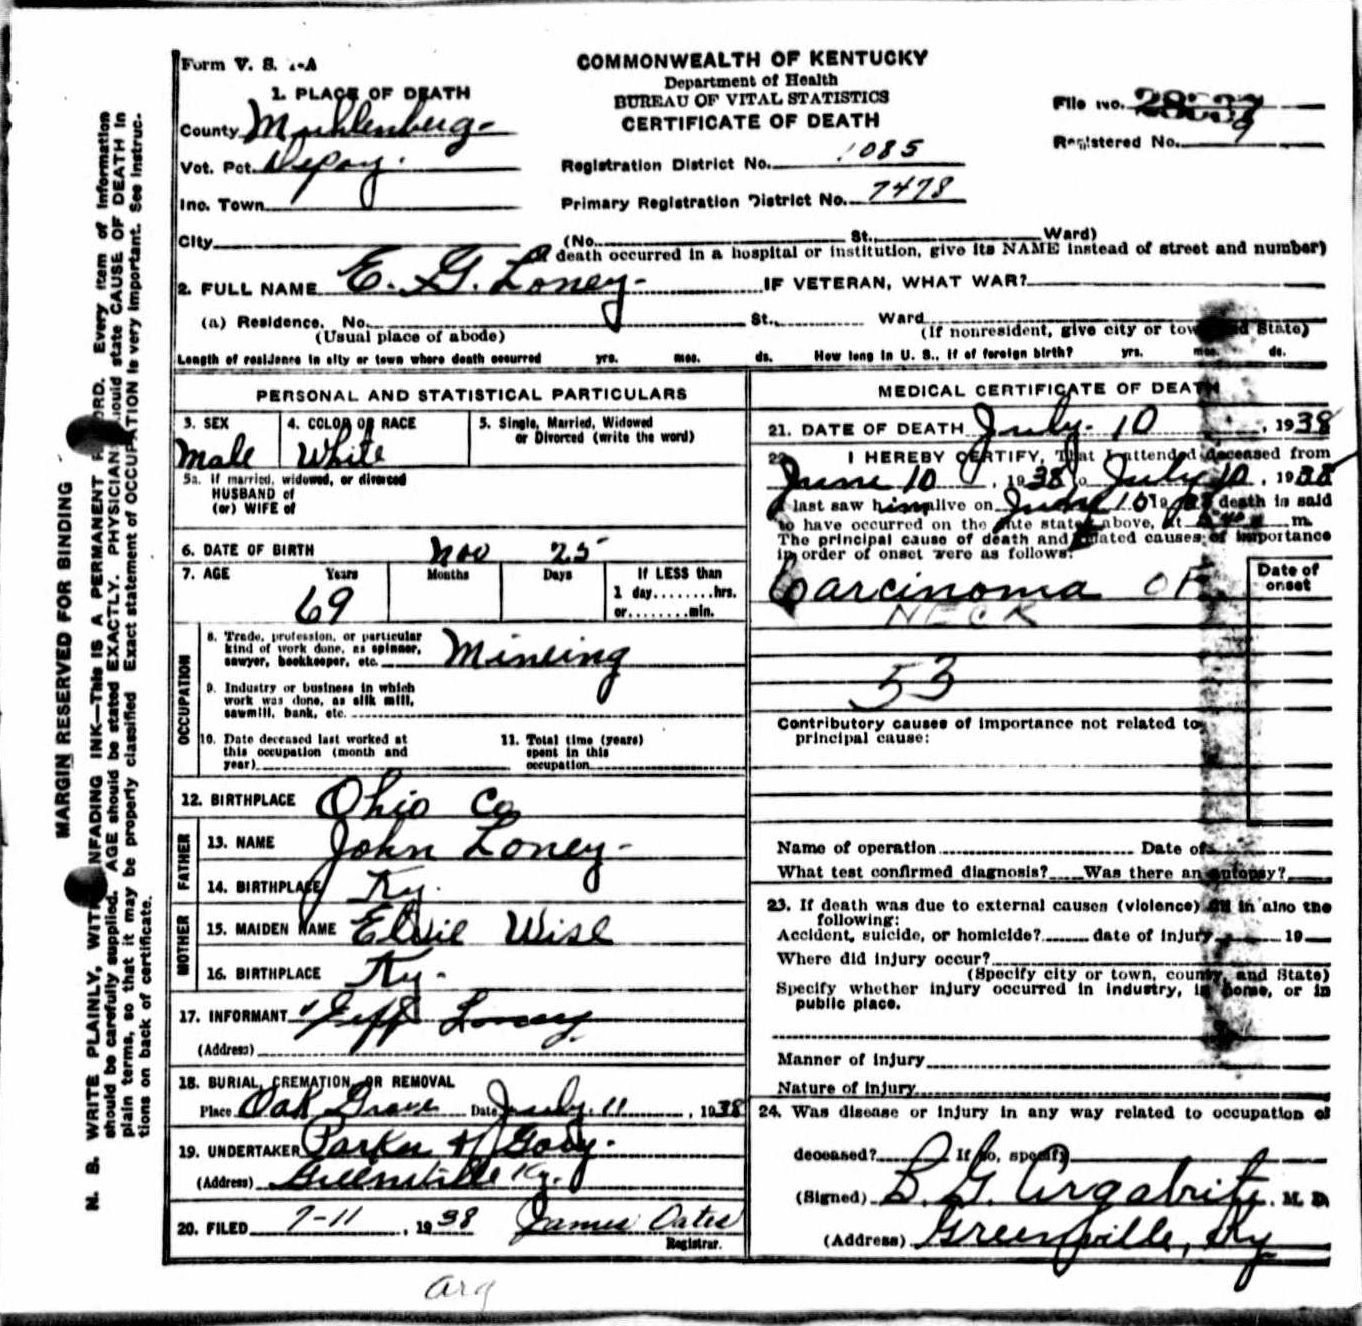 Form V. S. 1-A
COMMONWEALTH OF KENTUCKY
Department of Health
BUREAU OF VITAL STATISTICS
CERTIFICATE OF DEATH
File No.
Registered No.
Registration District No. 1085
Primary Registration District No. 7478
1. PLACE OF DEATH
County Muhlenberg
Vot. Pct. Depoy.
Inc. Town
City (No. St. Ward)
(If death occurred in a hospital or institution, give its NAME instead of street and number)
2. FULL NAME E. G. Loney IF VETERAN, WHAT WAR?
(a) Residence. No. St., Ward
(Usual place of abode) (If nonresident, give city or town and State)
Length of residence in city or town where death occurred yrs. mos. ds. How long in U. S., if of foreign birth? yrs. mos. ds.
PERSONAL AND STATISTICAL PARTICULARS
3. SEX Male
4. COLOR OR RACE White
5. Single, Married, Widowed
or Divorced (write the word)
5a. If married, widowed, or divorced
HUSBAND of
(or) WIFE of
6. DATE OF BIRTH Nov 25
7. AGE Years Months Days If LESS than
69 1 day........hrs.
or........min.
OCCUPATION
8. Trade, profession, or particular
kind of work done, as spinner,
sawyer, bookkeeper, etc. Mineing
9. Industry or business in which
work was done, as silk mill,
sawmill, bank, etc.
10. Date deceased last worked at
this occupation (month and
year)
11. Total time (years)
spent in this
occupation
12. BIRTHPLACE Ohio Co
FATHER
13. NAME John Loney
14. BIRTHPLACE Ky.
MOTHER
15. MAIDEN NAME Elvie Wise
16. BIRTHPLACE Ky.
17. INFORMANT Jeff Loney
(Address)
18. BURIAL, CREMATION, OR REMOVAL
Place Oak Grove Date July 11, 1938
19. UNDERTAKER Parker &
(Address) Greenville Ky.
20. FILED 7-11, 1938 James Oates
Registrar.
MEDICAL CERTIFICATE OF DEATH
21. DATE OF DEATH July 10, 1938
22. I HEREBY CERTIFY, That I attended deceased from
June 10, 1938 to July 10, 1938
I last saw him alive on July 10 19 death is said
to have occurred on the date stated above, at m.
The principal cause of death and related causes of importance
in order of onset were as follows:
Date of
onset
Carcinoma OF
NECK
53
Contributory causes of importance not related to
principal cause:
Name of operation Date of
What test confirmed diagnosis? Was there an autopsy?
23. If death was due to external causes (violence) fill in also the
following:
Accident, suicide, or homicide? date of injury 19
Where did injury occur?
(Specify city or town, county, and State)
Specify whether injury occurred in industry, in home, or in
public place.
Manner of injury
Nature of injury
24. Was disease or injury in any way related to occupation of
deceased? If so, specify
(Signed) B. G. Argabrite M. D.
(Address) Greenville, Ky
MARGIN RESERVED FOR BINDING
N. B. WRITE PLAINLY, WITH UNFADING INK—THIS IS A PERMANENT RECORD. Every item of information
should be carefully supplied. AGE should be stated EXACTLY. PHYSICIAN should state CAUSE OF DEATH in
plain terms, so that it may be properly classified. Exact statement of OCCUPATION is very important. See instruc-
tions on back of certificate.
arg